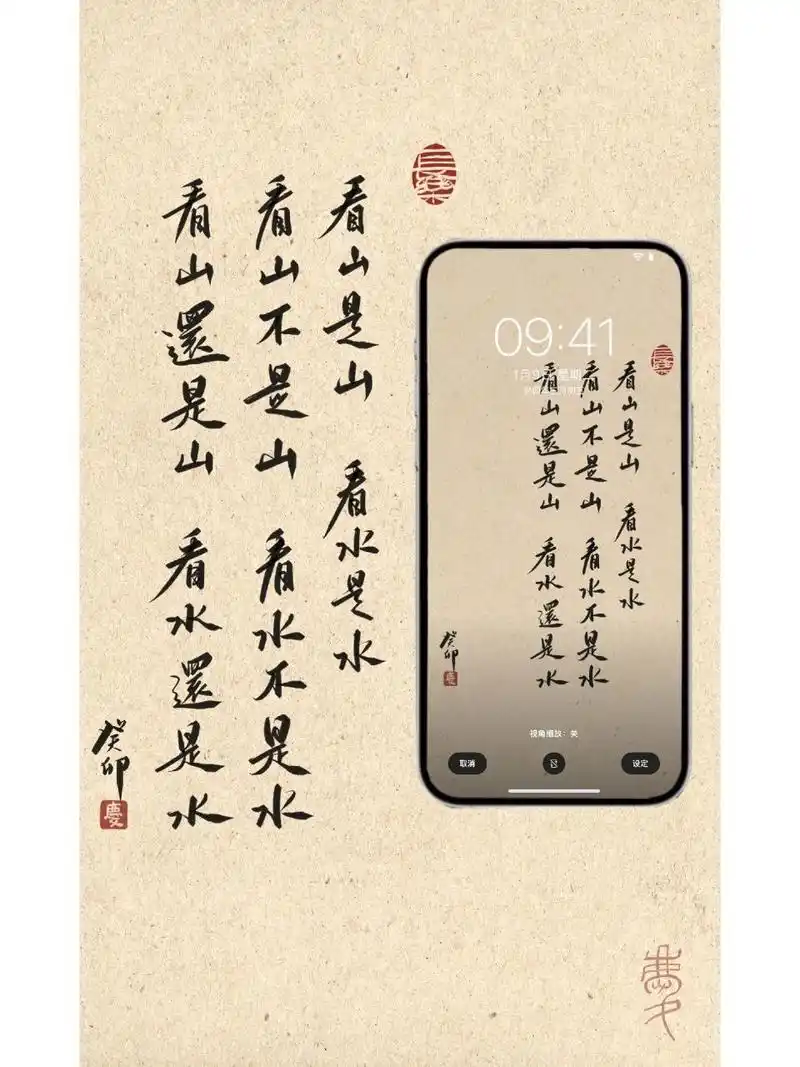 看山是山 看水是水
看山不是山 看水不是水
看山還是山 看水還是水
癸卯
慶
長樂
09:41
看山是山 看水是水
看山不是山 看水不是水
看山還是山 看水還是水
癸卯
慶
長樂
视角缩放：关
取消
设定